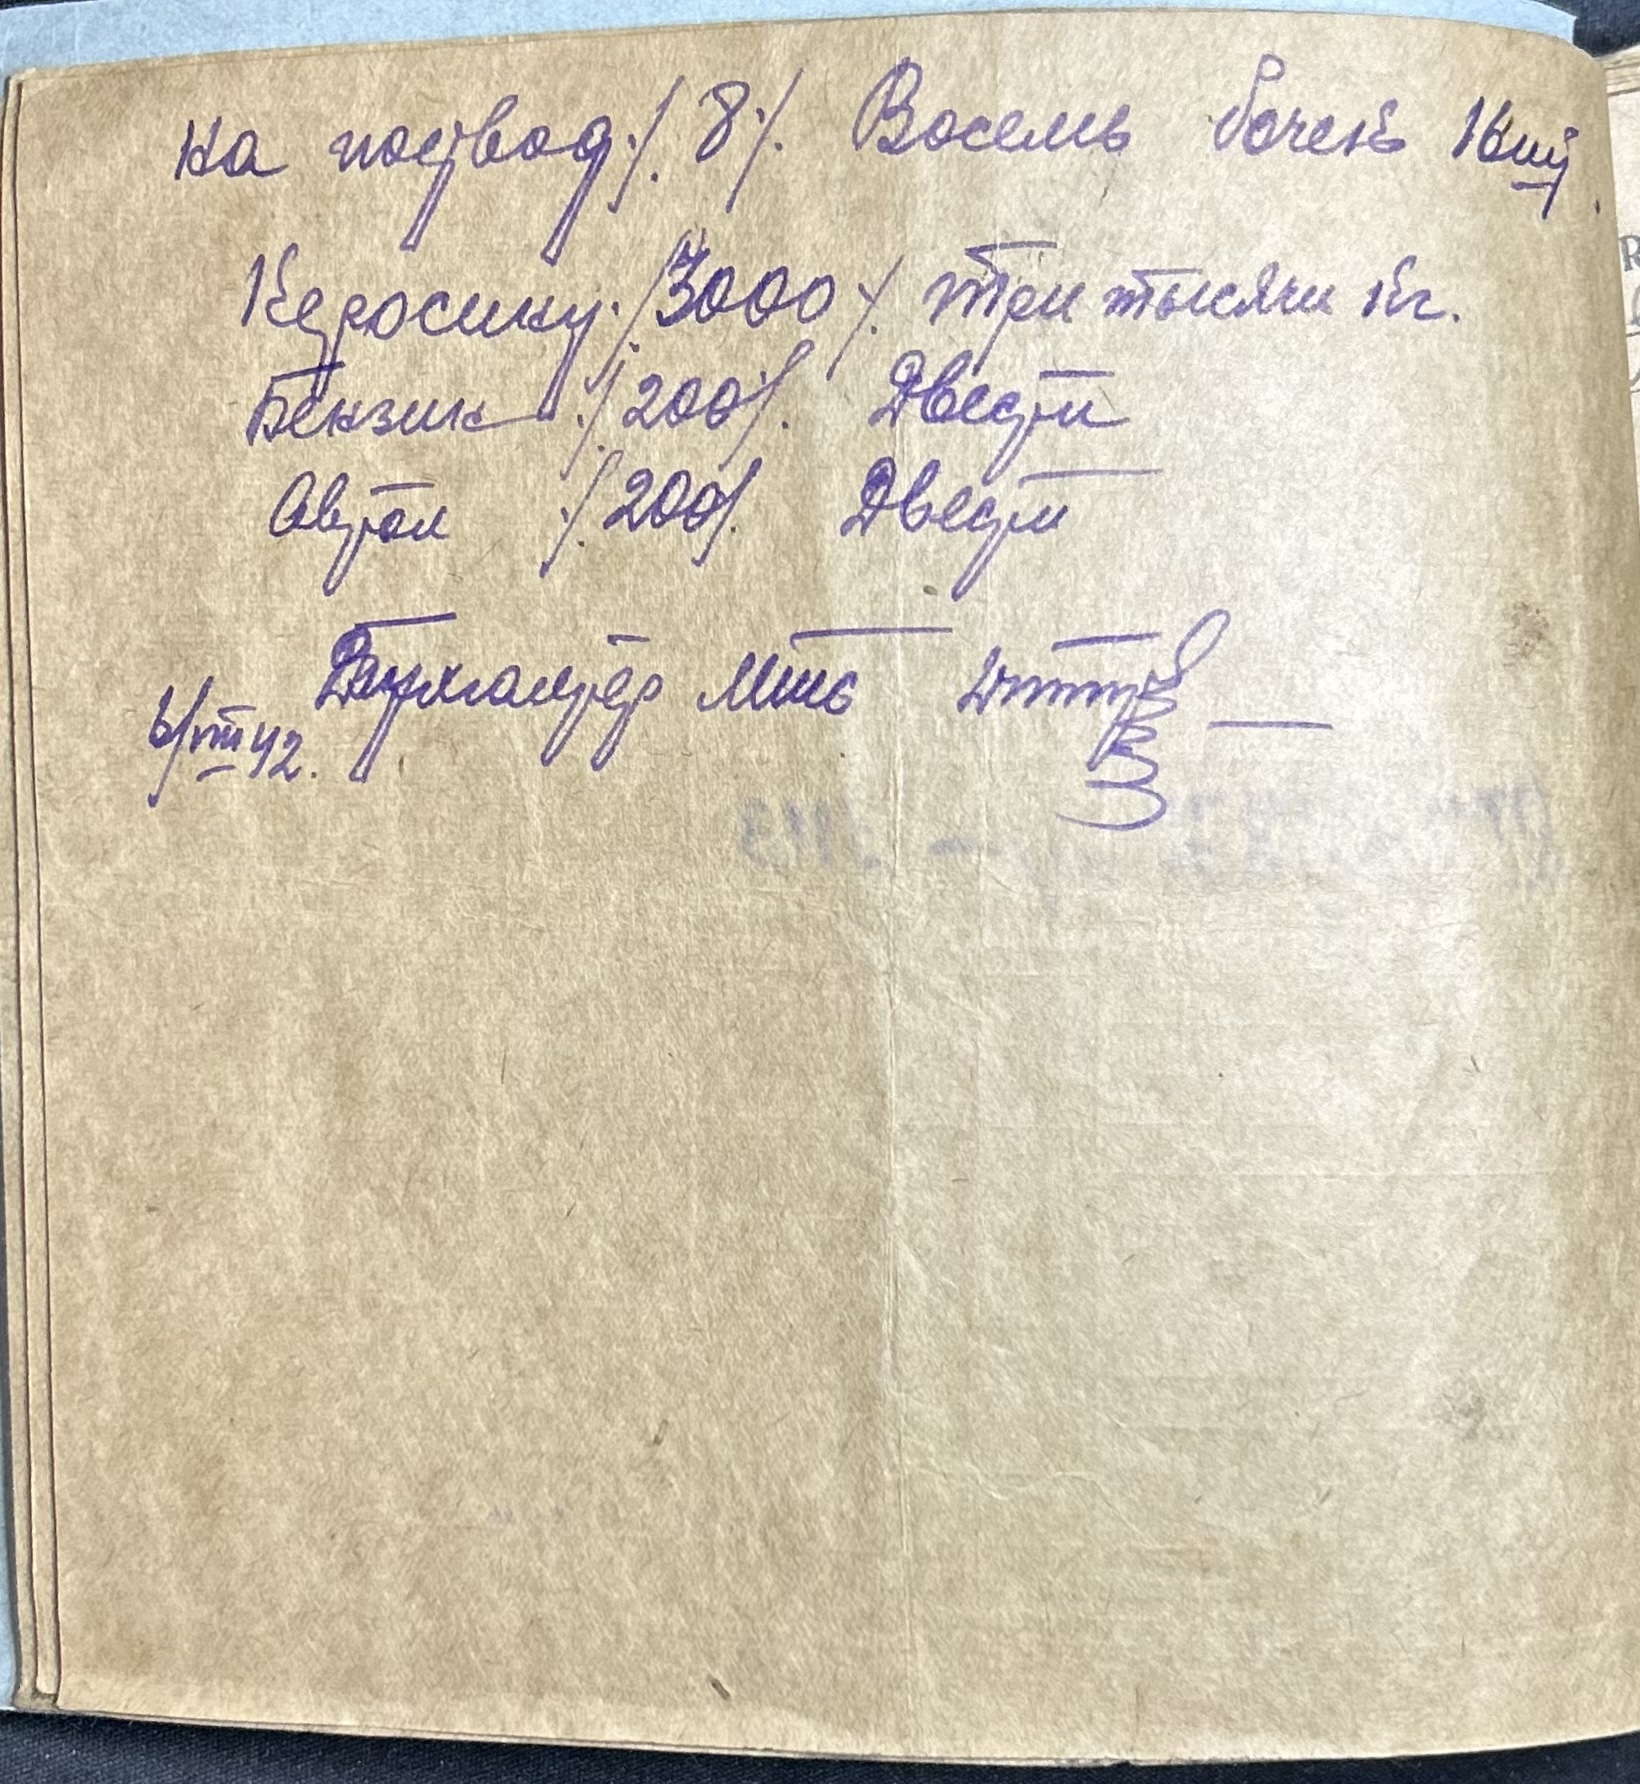 на подвод ./. 8 ./. Восемь бочек
Керосину ./. 3000 ./. три тысячи кг.
Бензин ./. 200 ./. Двести
Автол ./. 200 ./. Двести
Бухгалтер МТС
6/VIII 42.